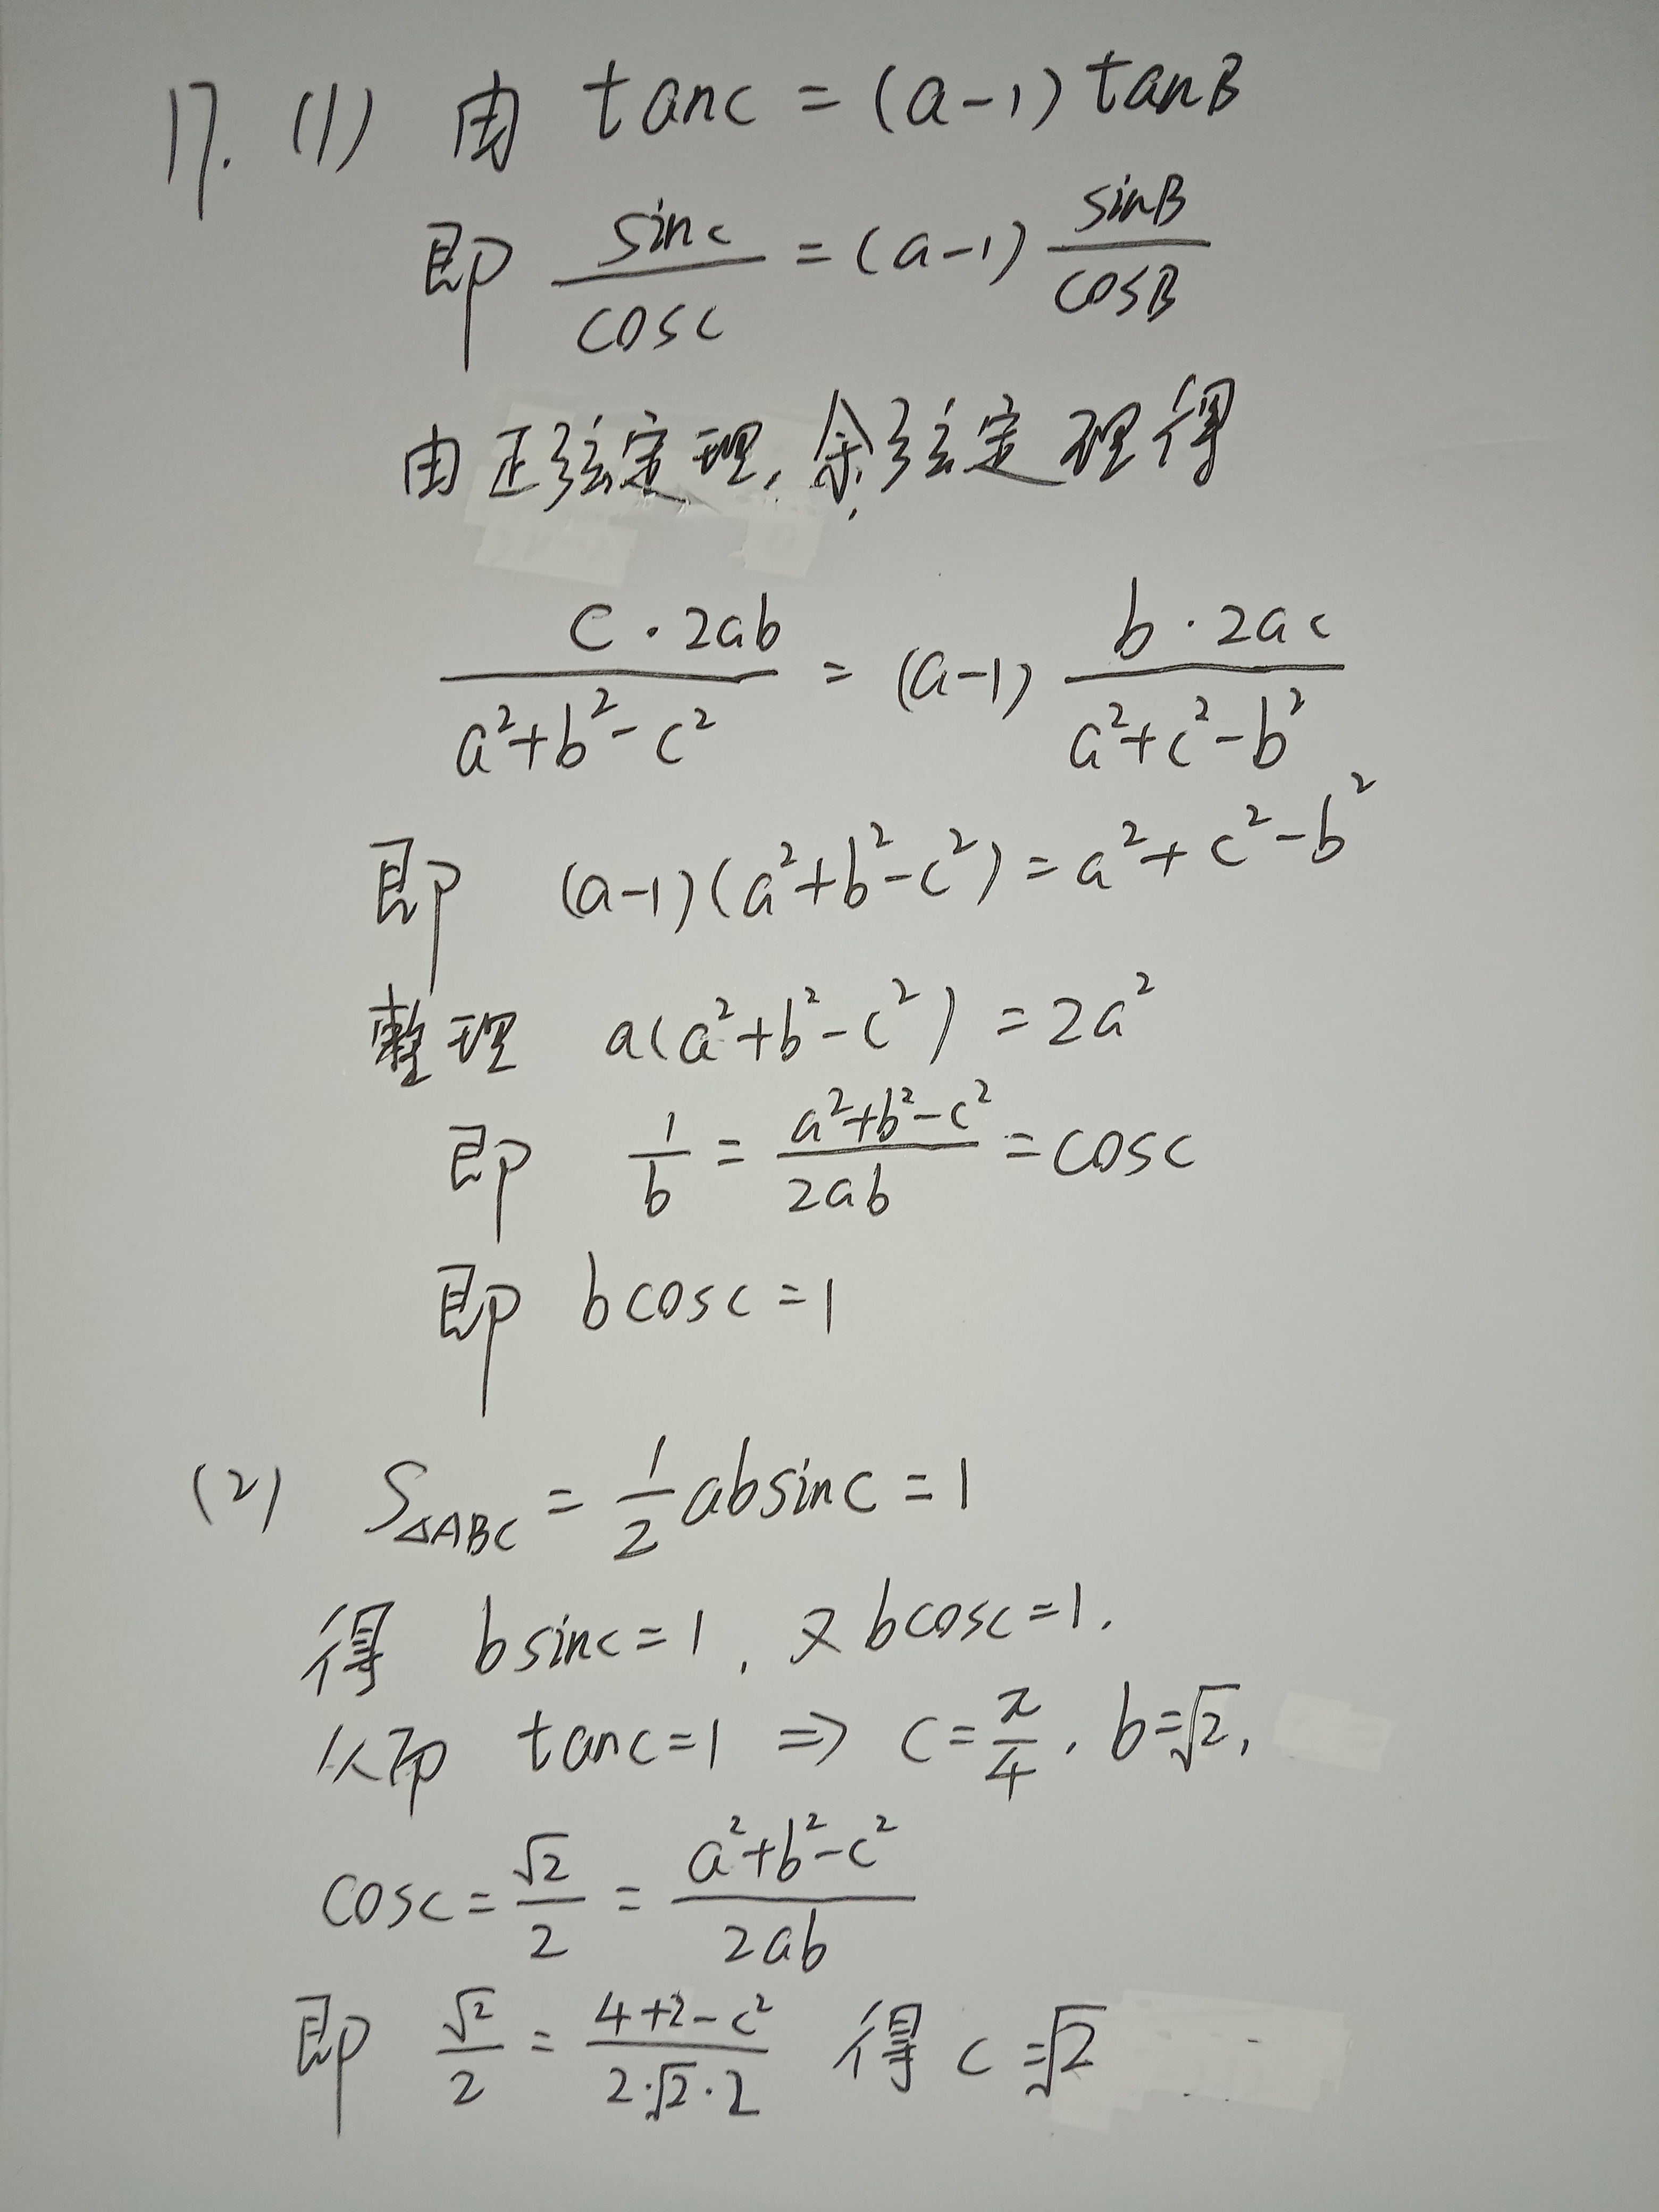 17. (1) 由 tanC = (a-1) tanB
即 sinC/cosC = (a-1) sinB/cosB
由正弦定理, 余弦定理得
c·2ab/(a²+b²-c²) = (a-1) b·2ac/(a²+c²-b²)
即 (a-1)(a²+b²-c²) = a²+c²-b²
整理 a(a²+b²-c²) = 2a²
即 1/b = (a²+b²-c²)/2ab = cosC
即 bcosC = 1
(2) S△ABC = 1/2 absinC = 1
得 bsinC = 1, 又 bcosC = 1.
从而 tanC = 1 ⇒ C = π/4, b = √2,
cosC = √2/2 = (a²+b²-c²)/2ab
即 √2/2 = (4+2-c²)/(2·√2·2) 得 c = √2